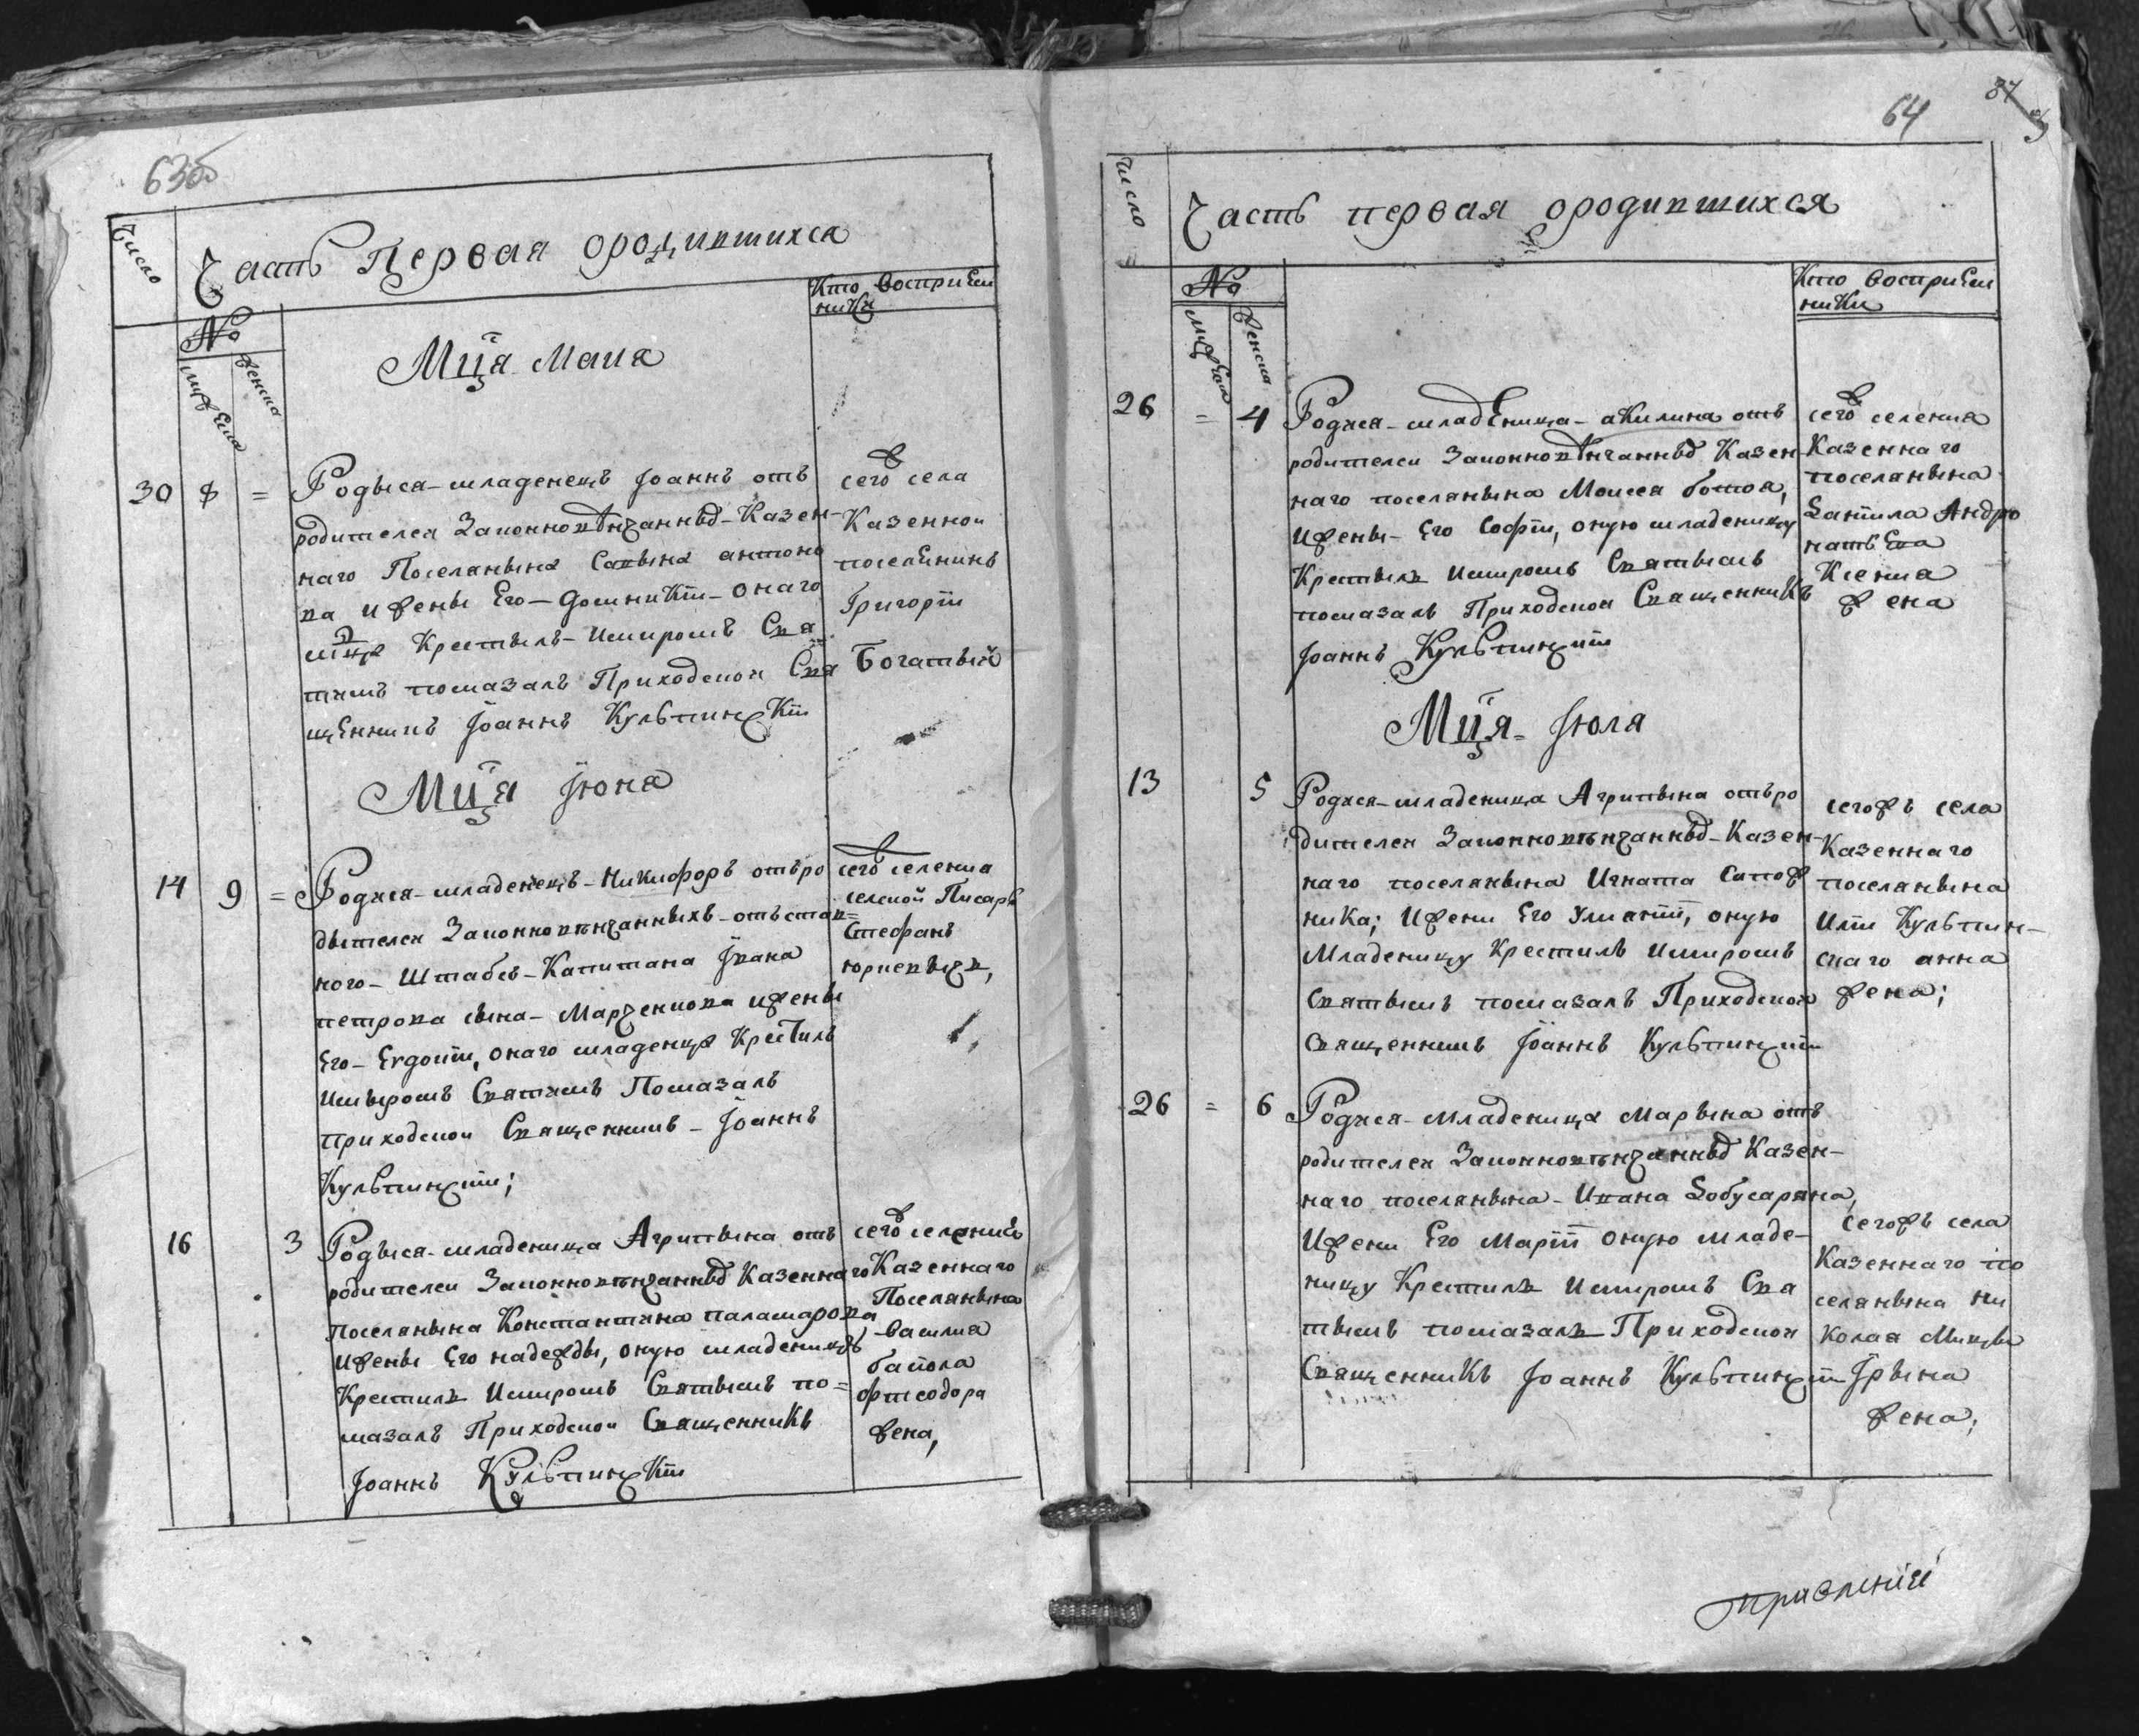 63об
Число
Часть Первая ородившихся
№
мужеска
женска
Кто восприEм
ники
Мца Маиа
30 8 =
Родыся-младенецъ Iоаннъ отъ
родителеи Законновѣнчаннвх-Казен-
наго Поселянына Савына антоно
ва ижены Его-домникiи-онаго
мца Крестылъ-Имиромъ Свя
тымъ помазалъ Приходскои Свя
щEнникъ Iоаннъ КульпинсКiи
сегожъ села
Казеннои
поселEнинъ
Григорiи
Богатый
Мца Iюна
14 9 =
Родися-младенецъ-Никифоръ отъро
дытелеи Законновѣнчанныхъ-отъстав=
ного-Штабсъ-Капитана Iвана
петрова сына-Марченкова ижены
Его-Евдокiи, онаго младенца Крестилъ
Имыромъ Святимъ Помазалъ
приходскои Священникъ-Iоаннъ
Кульпинскiи;
сегожъ селениа
селской Писаръ
Стефанъ
юриевычъ,
16 3
Родыся-младеница Агрипына отъ
родителеи Законновѣнчаннвх Казеннаго
поселянына Константина паламарова
ижены Его надежды, оную младеницу
Крестилъ Имиромъ Святымъ по=
мазалъ Приходскои СвященниКъ
Iоаннъ КульпинсКiи
сегожъ селениъ
Казеннаго
Поселянына
василиа
фтеодора
жена,
64
Число
Часть первая ородившихся
№
мужEска
женска
Кто восприEм
ники
26 = 4
Родися-младEница-аКилина отъ
родителеи Законновѣнчаннвх Казен-
наго поселянына Моисеа ботоа,
Ижены-Его Софiи, оную младеницу
Крестылъ Имиромъ Святымъ
помазалъ Приходскои СвященниКъ
Iоаннъ Кульпинскiи
сегожъ селениа
Казеннаго
поселянына
Андро
Ксениа
жена
Мца-Iюля
13 5
Родися-младеница Агрипына отъро
дителеи Законновѣнчаннвх-Казен-
наго поселянына Игната Сапож
ниКа; Ижени Его Улианiи, оную
Младеницу Крестилъ Имиромъ
Святымъ помазалъ Приходскои
Священникъ Iоаннъ Кульпинскiи
сегожъ села
Казеннаго
поселянына
Илiи Кульпин-
скаго анна
жена;
26 = 6
Родися-Младеница Марына отъ
родителеи Законновѣнчаннвх Казен-
наго поселянына-Ивана Бобусаряна,
Ижени Его Марiи оную младе-
ницу Крестилъ Имиромъ Свя
тымъ помазалъ-Приходскои
СвященниКъ Iоаннъ Кульпинскiи
сегожъ села
Казеннаго по
селянына Ни
колая
Iрына
жена;